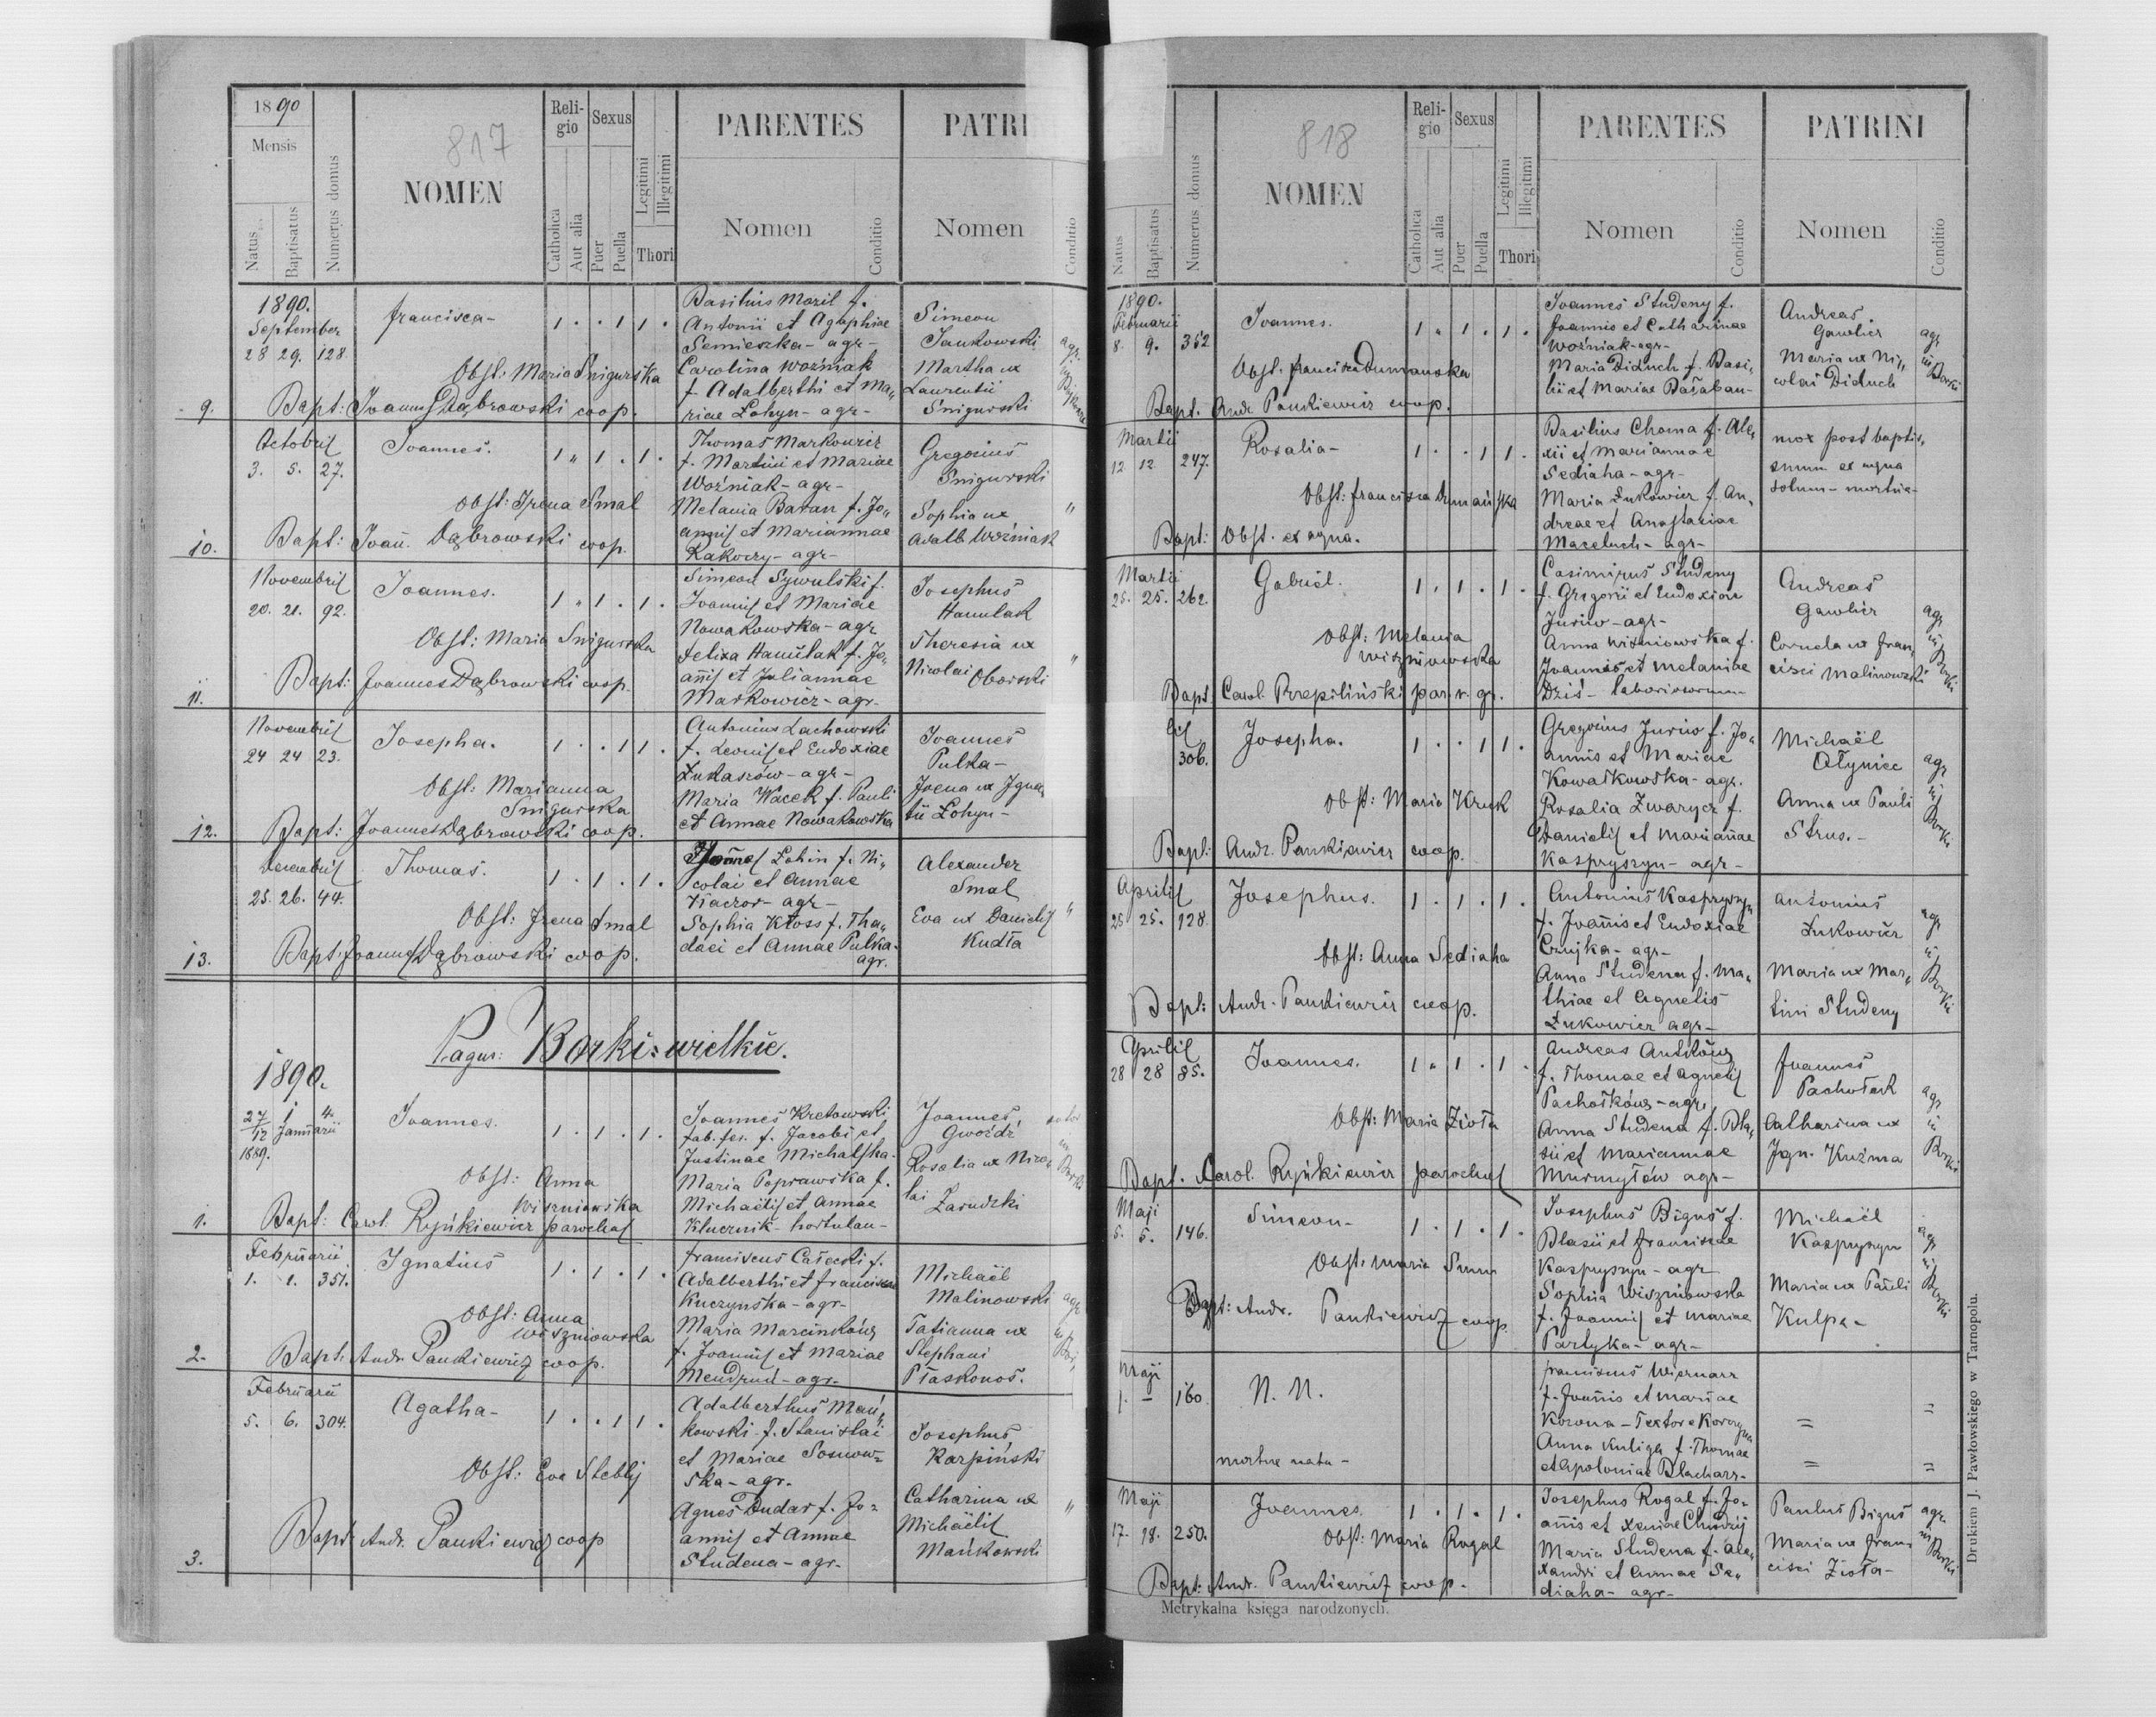 1890
Mensis
Natus
Baptisatus
Numerus domus
817
NOMEN
Religio
Catholica
Aut alia
Sexus
Puer
Puella
Legitimi
Illegitimi
Thori
PARENTES
Nomen
Conditio
PATRI
Nomen
Conditio
1890.
September
28 29. 128.
Francisca-
1 . . 1 1 .
Obst: Maria Snigurska
9. Bapt: Joannes Dąbrowski coop.
Basilius Mazil f.
Antonii et Agaphiae
Semieszka- agr-
Carolina Woźniak
f. Adalberthi et Ma„
riae Łohyn- agr-
Simeon
Jankowski
Martha ux
Laurentii
Śnigurski
agr.
Octobris
3. 5. 27.
Joannes.
1 „ 1 . 1 .
Obst: Irena Smal
10. Bapt: Joan. Dąbrowski coop.
Thomas Markowicz
f. Martini et Mariae
Woźniak- agr-
Melania Baran f. Jo„
annis et Mariannae
Rakoczy- agr-
Gregorius
Snigurski
Sophia ux
Adalb Woźniak
"
Novembris
20. 21. 92.
Joannes.
1 „ 1 . 1 .
Obst: Maria Snigurska
11. Bapt: Joannes Dąbrowski coop.
Simeon Sywulski f.
Joannis et Mariae
Nowakowska- agr
Felixa Hanulak f. Jo„
anis et Juliannae
Markowicz- agr-
Josephus
Hanulak
Theresia ux
Nicolai Oborski
"
Novembris
24 24 23.
Josepha.
1 . . 1 1 .
Obst: Marianna
Snigurska
12. Bapt: Joannes Dąbrowski coop.
Antonius Lachowski
f. Leonis et Eudoxiae
Łukaszów- agr-
Maria Wacek f. Pauli
et Annae Nowakowska
Joannes
Pulka-
Irena ux Igna„
tii Łohyn-
Decembris
25. 26. 44.
Thomas.
1 . 1 . 1 .
Obst: Irena Smal
13. Bapt: Joannes Dąbrowski coop.
Joannes Łohin f. Ni„
colai et Annae
Kaczor- agr-
Sophia Kłoss f. Tha„
daei et Annae Pulka-
agr.
Alexander
Smal
Eva ux Danielis
Kudła
"
Pagus: Borki-wielkie.
1890.
27/12 1889. 1 Januarii 4.
Joannes.
1 . 1 . 1 .
Obst: Anna
Wiszniowska
1. Bapt: Carol. Ryńkiewicz parochus
Joannes Kretowski
fab. fer. f. Jacobi et
Justinae Michalska-
Maria Poprawska f.
Michaëlis et Annae
Klucznik- hortulan-
Joannes
Gwoźdź
Rosalia ux Nico„
lai Zarudzki
Februarii
1. 1. 351.
Ignatius
1 . 1 . 1 .
Obst: Anna
Wiszniowska
2. Bapt: Andr. Pankiewicz coop.
Franciscus Całecki f.
Adalberthi et Franciscae
Kuczyńska- agr-
Maria Marcinków
f. Joannis et Mariae
Mendruń- agr-
Michaël
Malinowski
Tatianna ux
Stephani
Płaskonos.
agr
Februarii
5. 6. 304.
Agatha-
1 . . 1 1 .
Obst: Eva Steblij
3. Bapt: Andr. Pankiewicz coop
Adalberthus Mań„
kowski f. Stanislai
et Mariae Sosnow=
ska- agr.
Agnes Dudar f. Jo=
annis et Annae
Studena- agr-
Josephus
Karpiński
Catharina ux
Michaëlis
Mańkowski
"
Natus
Baptisatus
Numerus domus
818
NOMEN
Religio
Catholica
Aut alia
Sexus
Puer
Puella
Legitimi
Illegitimi
Thori
PARENTES
Nomen
Conditio
PATRINI
Nomen
Conditio
1890.
Februarii
8. 9. 352
Joannes.
1 „ 1 . 1 .
Obst: Francisca Dumanska
Bapt. Andr Pankiewicz coop.
Joannes Studeny f.
Joannis et Catharinae
Woźniak- agr-
Maria Diduch f. Basi„
lii et Mariae Bałaban-
Andreas
Gawlicz
Maria ux Ni„
colai Diduch
agr
in
Borki
Martii
12 12 247.
Rosalia-
1 . . 1 1 .
Obst: Francisca Dumańska
Bapt: Obst. ex aqua.
Basilius Choma f. Ale„
xii et Mariannae
Sediaha- agr-
Maria Łukowicz f. An„
dreae et Anastasiae
Maceluch- agr-
mox post baptis„
mum ex aqua
solum- mortua-
Martii
25. 25. 262.
Gabriel.
1 . 1 . 1 .
Obst: Melania
Wiszniowska
Bapt Carol. Przepiliński par. r. gr.
Casimirus Studeny
f. Gregorii et Eudoxiae
Juriw- agr-
Anna Wiszniowska f.
Joannis et Melaniae
Dziś- laboriosorum-
Andreas
Gawlicz
Cornela ux Fran„
cisci Malinowski
agr
in
Borki
306.
Josepha.
1 . . 1 1 .
Obst: Maria Kruk
Bapt: Andr. Pankiewicz coop.
Gregorius Juriw f. Jo„
annis et Mariae
Kowalkowska- agr.
Rosalia Zwarycz f.
Danielis et Mariannae
Kaspryszyn- agr-
Michaël
Ołyniec
Anna ux Pauli
Strus.-
agr
in
Borki
Aprilis
25 25. 128.
Josephus.
1 . 1 . 1 .
Obst: Anna Sediaha
Bapt: Andr. Pankiewicz coop.
Antonius Kaspryszyn
f. Joannis et Eudoxiae
Czujka- agr-
Anna Studena f. Ma„
thiae et Agnetis
Łukowicz agr-
Antonius
Łukowicz
Maria ux Mar„
tini Studeny
agr
in
Borki
Aprilis
28 28 85.
Joannes.
1 „ 1 . 1 .
Obst: Maria Zioła
Bapt. Carol. Ryńkiewicz parochus
Andreas Antków
f. Thomae et Agnetis
Pachołków- agr.
Anna Studena f. Bla„
sii et Mariannae
Murmyłów agr-
Joannes
Pachołek
Catharina ux
Ign. Kuźma
agr
in
Borki
Maji
5. 5. 146.
Simeon-
1 . 1 . 1 .
Obst: Maria
Bapt: Andr. Pankiewicz coop.
Josephus Bigus f.
Blasii et Franciscae
Kaspryszyn- agr
Sophia Wiszniowska
f. Joannis et Mariae
Partyka- agr-
Michaël
Kaspryszyn
Maria ux Pauli
Kulpa-
agr
in
Borki
Maji
1. - 160
N. N.
mortue nata-
Franciscus Wiernarz
f. Joannis et Mariae
Korona- Textor e Korczyna
Anna Kuliga f. Thomae
et Apoloniae Blacharz-
=
=
=
=
Maji
17. 18. 250.
Joannes.
1 . 1 . 1 .
Obst: Maria Rogal
Bapt: Andr. Pankiewicz coop.
Josephus Rogal f. Jo„
anis et Xeniae Chudzij
Maria Studena f. Ale„
xandri et Annae Se„
diaha- agr-
Paulus Bigus
Maria ux Fran„
cisci Zioła-
agr.
in
Borki
Metrykalna księga narodzonych.
Drukiem J. Pawłowskiego w Tarnopolu.